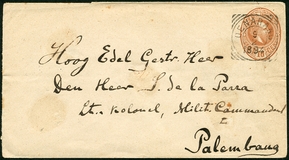 Hoog Edel Gestr. Heer
Den Heer S. de la Parra
Lt. Kolonel, Milit. Commandant
Palembang